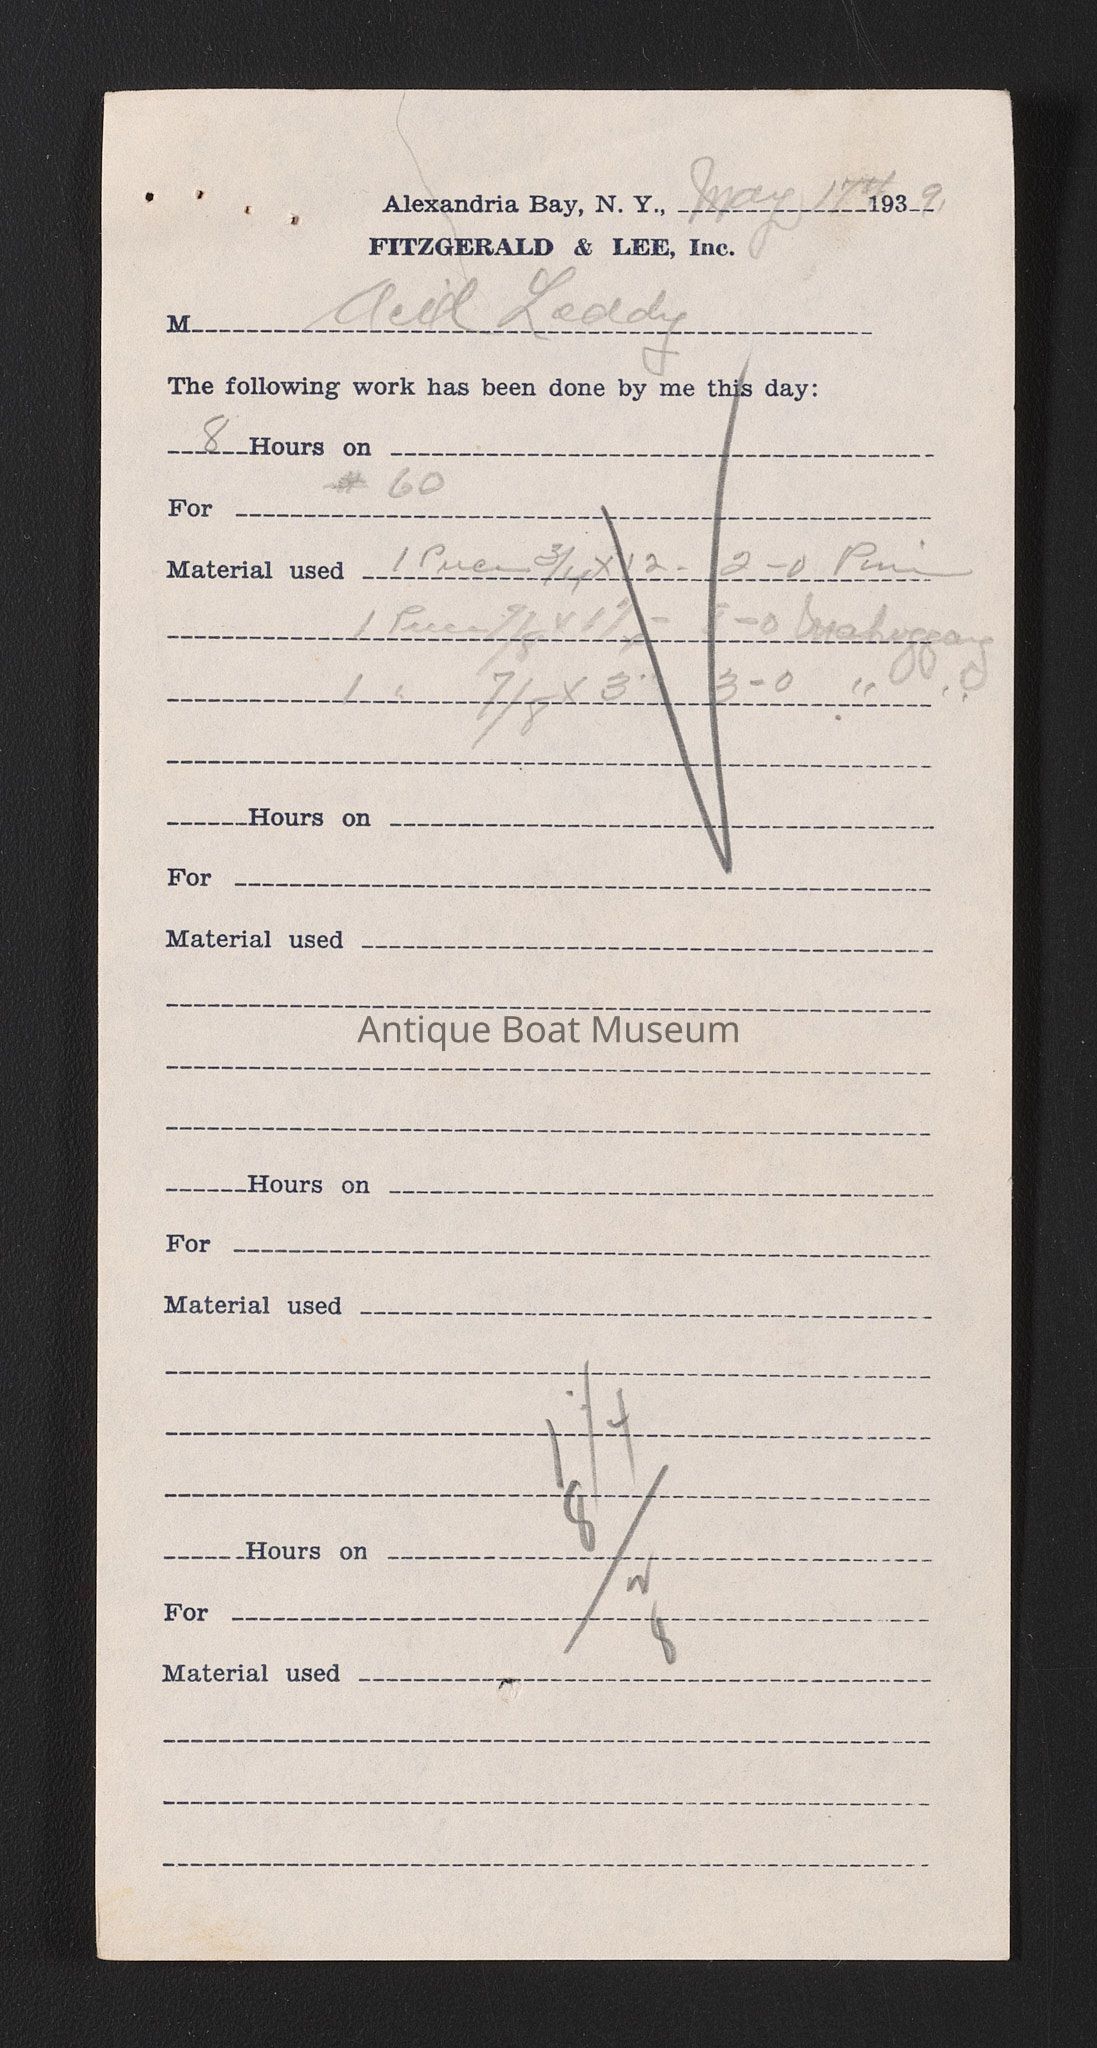 Alexandria Bay, N. Y., May 17th 1939.
FITZGERALD & LEE, Inc.
M Leddy
The following work has been done by me this day:
8 Hours on
# 60
For
Material used 1 Piece 3/4 x 12 - 2-0 Pine
1 Piece 7/8 x - -0 Mahoggany
1 " 7/8 x 3" 3-0 " "
Hours on
For
Material used
Antique Boat Museum
Hours on
For
Material used
8
Hours on
For
8
Material used